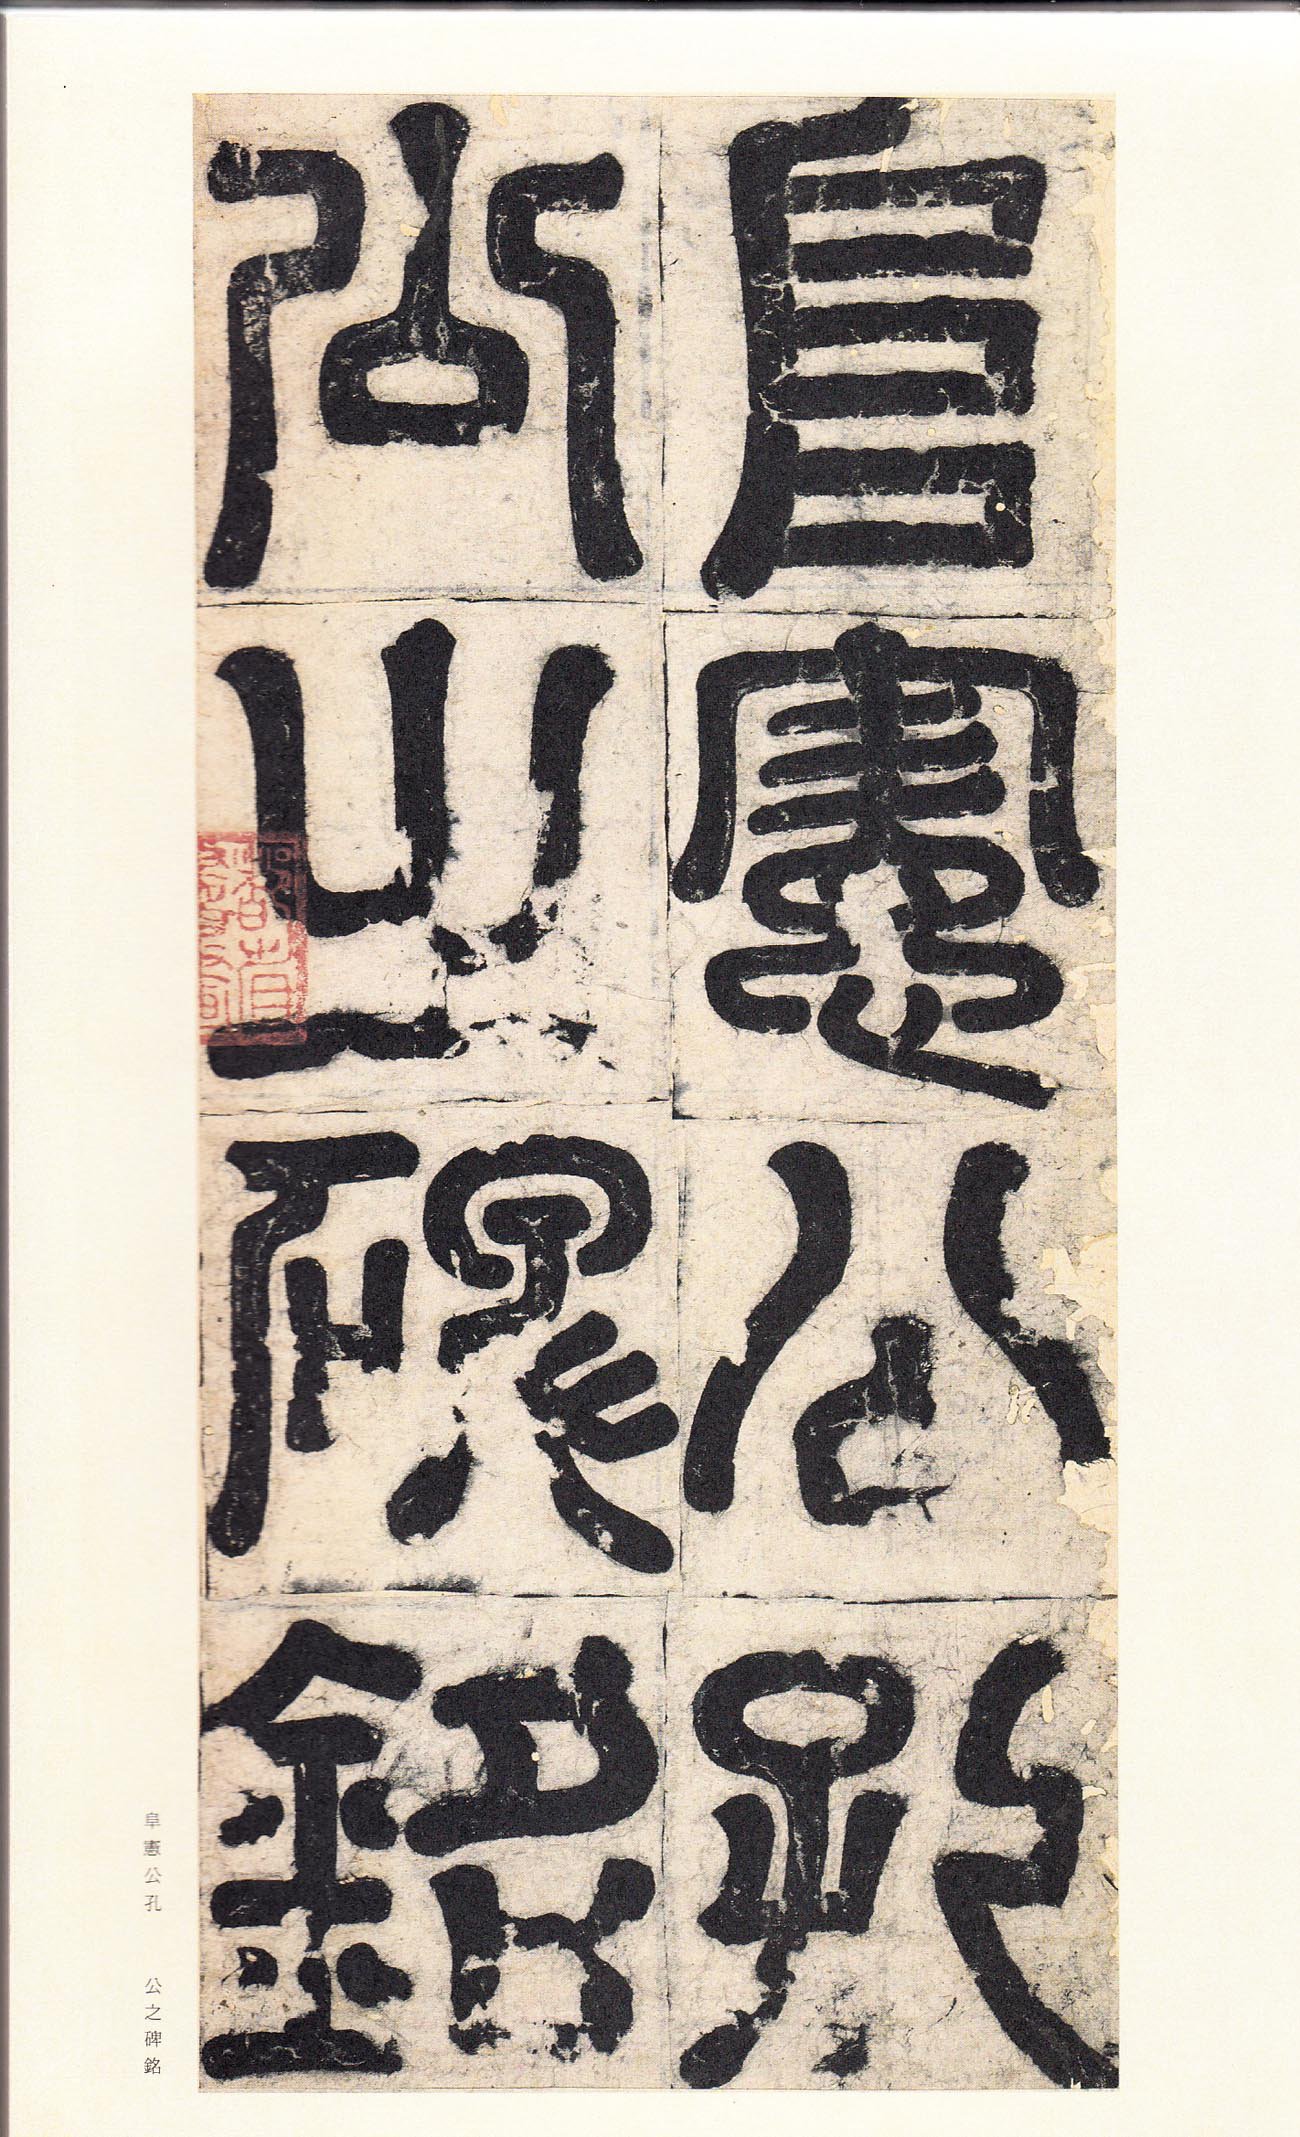 阜憲公孔
公之碑銘
阜憲公孔　公之碑銘